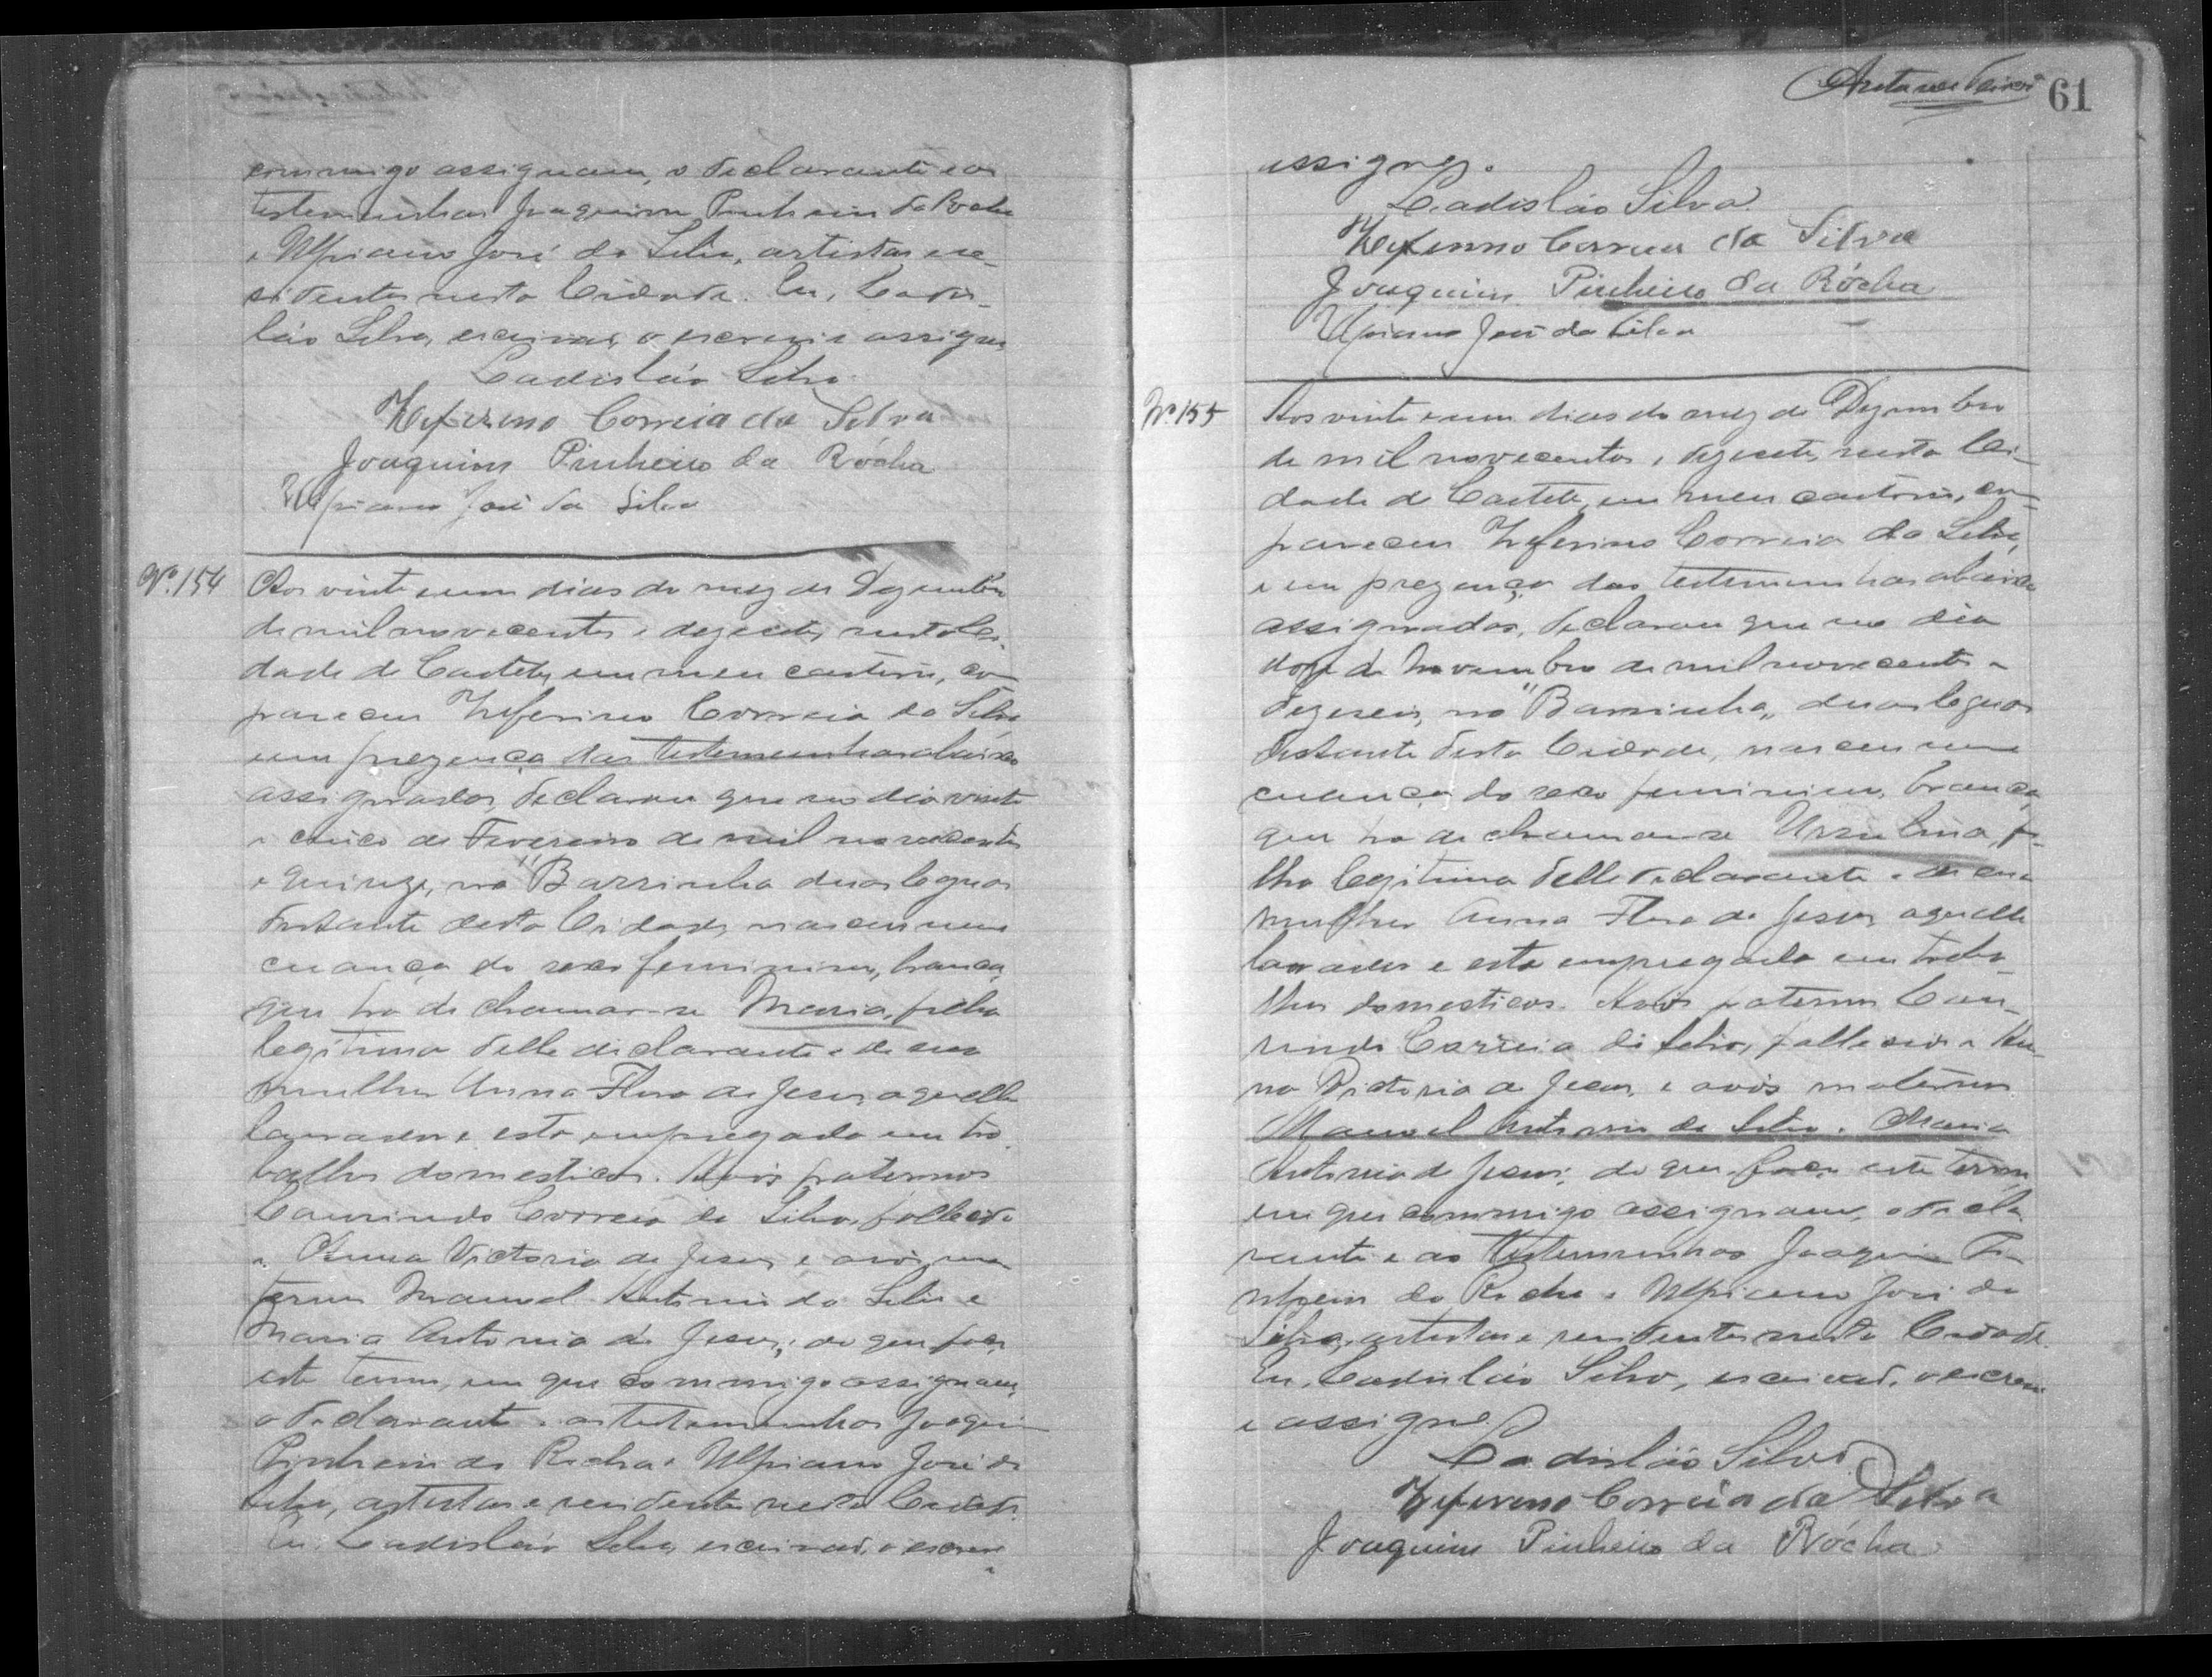 commigo assignam, o declarante e as
testemunhas Joaquim Pinheiro da Rocha
e Ulpiano José da Silva, artistas e re-
sidentes nesta Cidade. Eu, Ladis-
láo Silva, escrivão, o escrevi e assigno
Ladisláo Silva
Zeferino Correia da Silva
Joaquim Pinheiro da Rócha
Ulpiano José da Silva
Nº. 154
Aos vinte e um dias do mez de Dezembro
de mil novecentos e dezesete, nesta Ci-
dade de Caeteté, em meu cartorio, com-
pareceu Zeferino Correia da Silva
e em prezença das testemunhas abaixo
assignados, declarou que no dia vinte
e cinco de Fevereiro de mil novecentos
e quinze, na "Barrinha duas leguas
distante desta Cidade, nasceu uma
creança do sexo feminino, branca,
que ha de chamar-se Maria, filha
legitima delle declarante e de sua
mulher Anna Flora de Jesus, aquelle
lavrador e esta empregada em tra-
balhos domesticos. Avós paternos
Laurindo Correia da Silva, fallecido
e Anna Victoria de Jesus, e avós ma-
ternos Manoel Antonio da Silva e
Maria Antonia de Jesus; do que faço
este termo, em que commigo assignam,
o declarante e as testemunhas Joaquim
Pinheiro da Rocha e Ulpiano José da
Silva, artistas e residentes nesta Cidade.
Eu, Ladisláo Silva, escrivão, o escrevi
e
61
assigno.
Ladisláo Silva
Zeferino Correia da Silva
Joaquim Pinheiro da Rócha
Ulpiano José da Silva
Nº. 155
Aos vinte e um dias do mez de Dezembro
de mil novecentos e dezesete, nesta Ci-
dade de Caeteté, em meu cartorio, com-
pareceu Zeferino Correia da Silva,
e em prezença das testemunhas abaixo
assignadas, declarou que no dia
doze de Novembro de mil novecentos e
dezeseis, na "Barrinha" duas leguas
distante desta Cidade, nasceu uma
creança do sexo feminino, branca,
que ha de chamar-se Ursulina, fi-
lha legitima delle declarante e de sua
mulher Anna Flora de Jesus, aquelle
lavrador e esta empregada em traba-
lhos domesticos. Avós paternos Lau-
rindo Correia da Silva, fallecido e An-
na Victoria de Jesus, e avós maternos
Manoel Antonio da Silva e Maria
Antonia de Jesus; do que faço este termo,
em que commigo assignam, o decla-
rante e as testemunhas Joaquim Pi-
nheiro da Rocha e Ulpiano José da
Silva, artistas e residentes nesta Cidade.
Eu, Ladisláo Silva, escrivão, o escrevi
e assigno
Ladisláo Silva
Zeferino Correia da Silva
Joaquim Pinheiro da Rócha